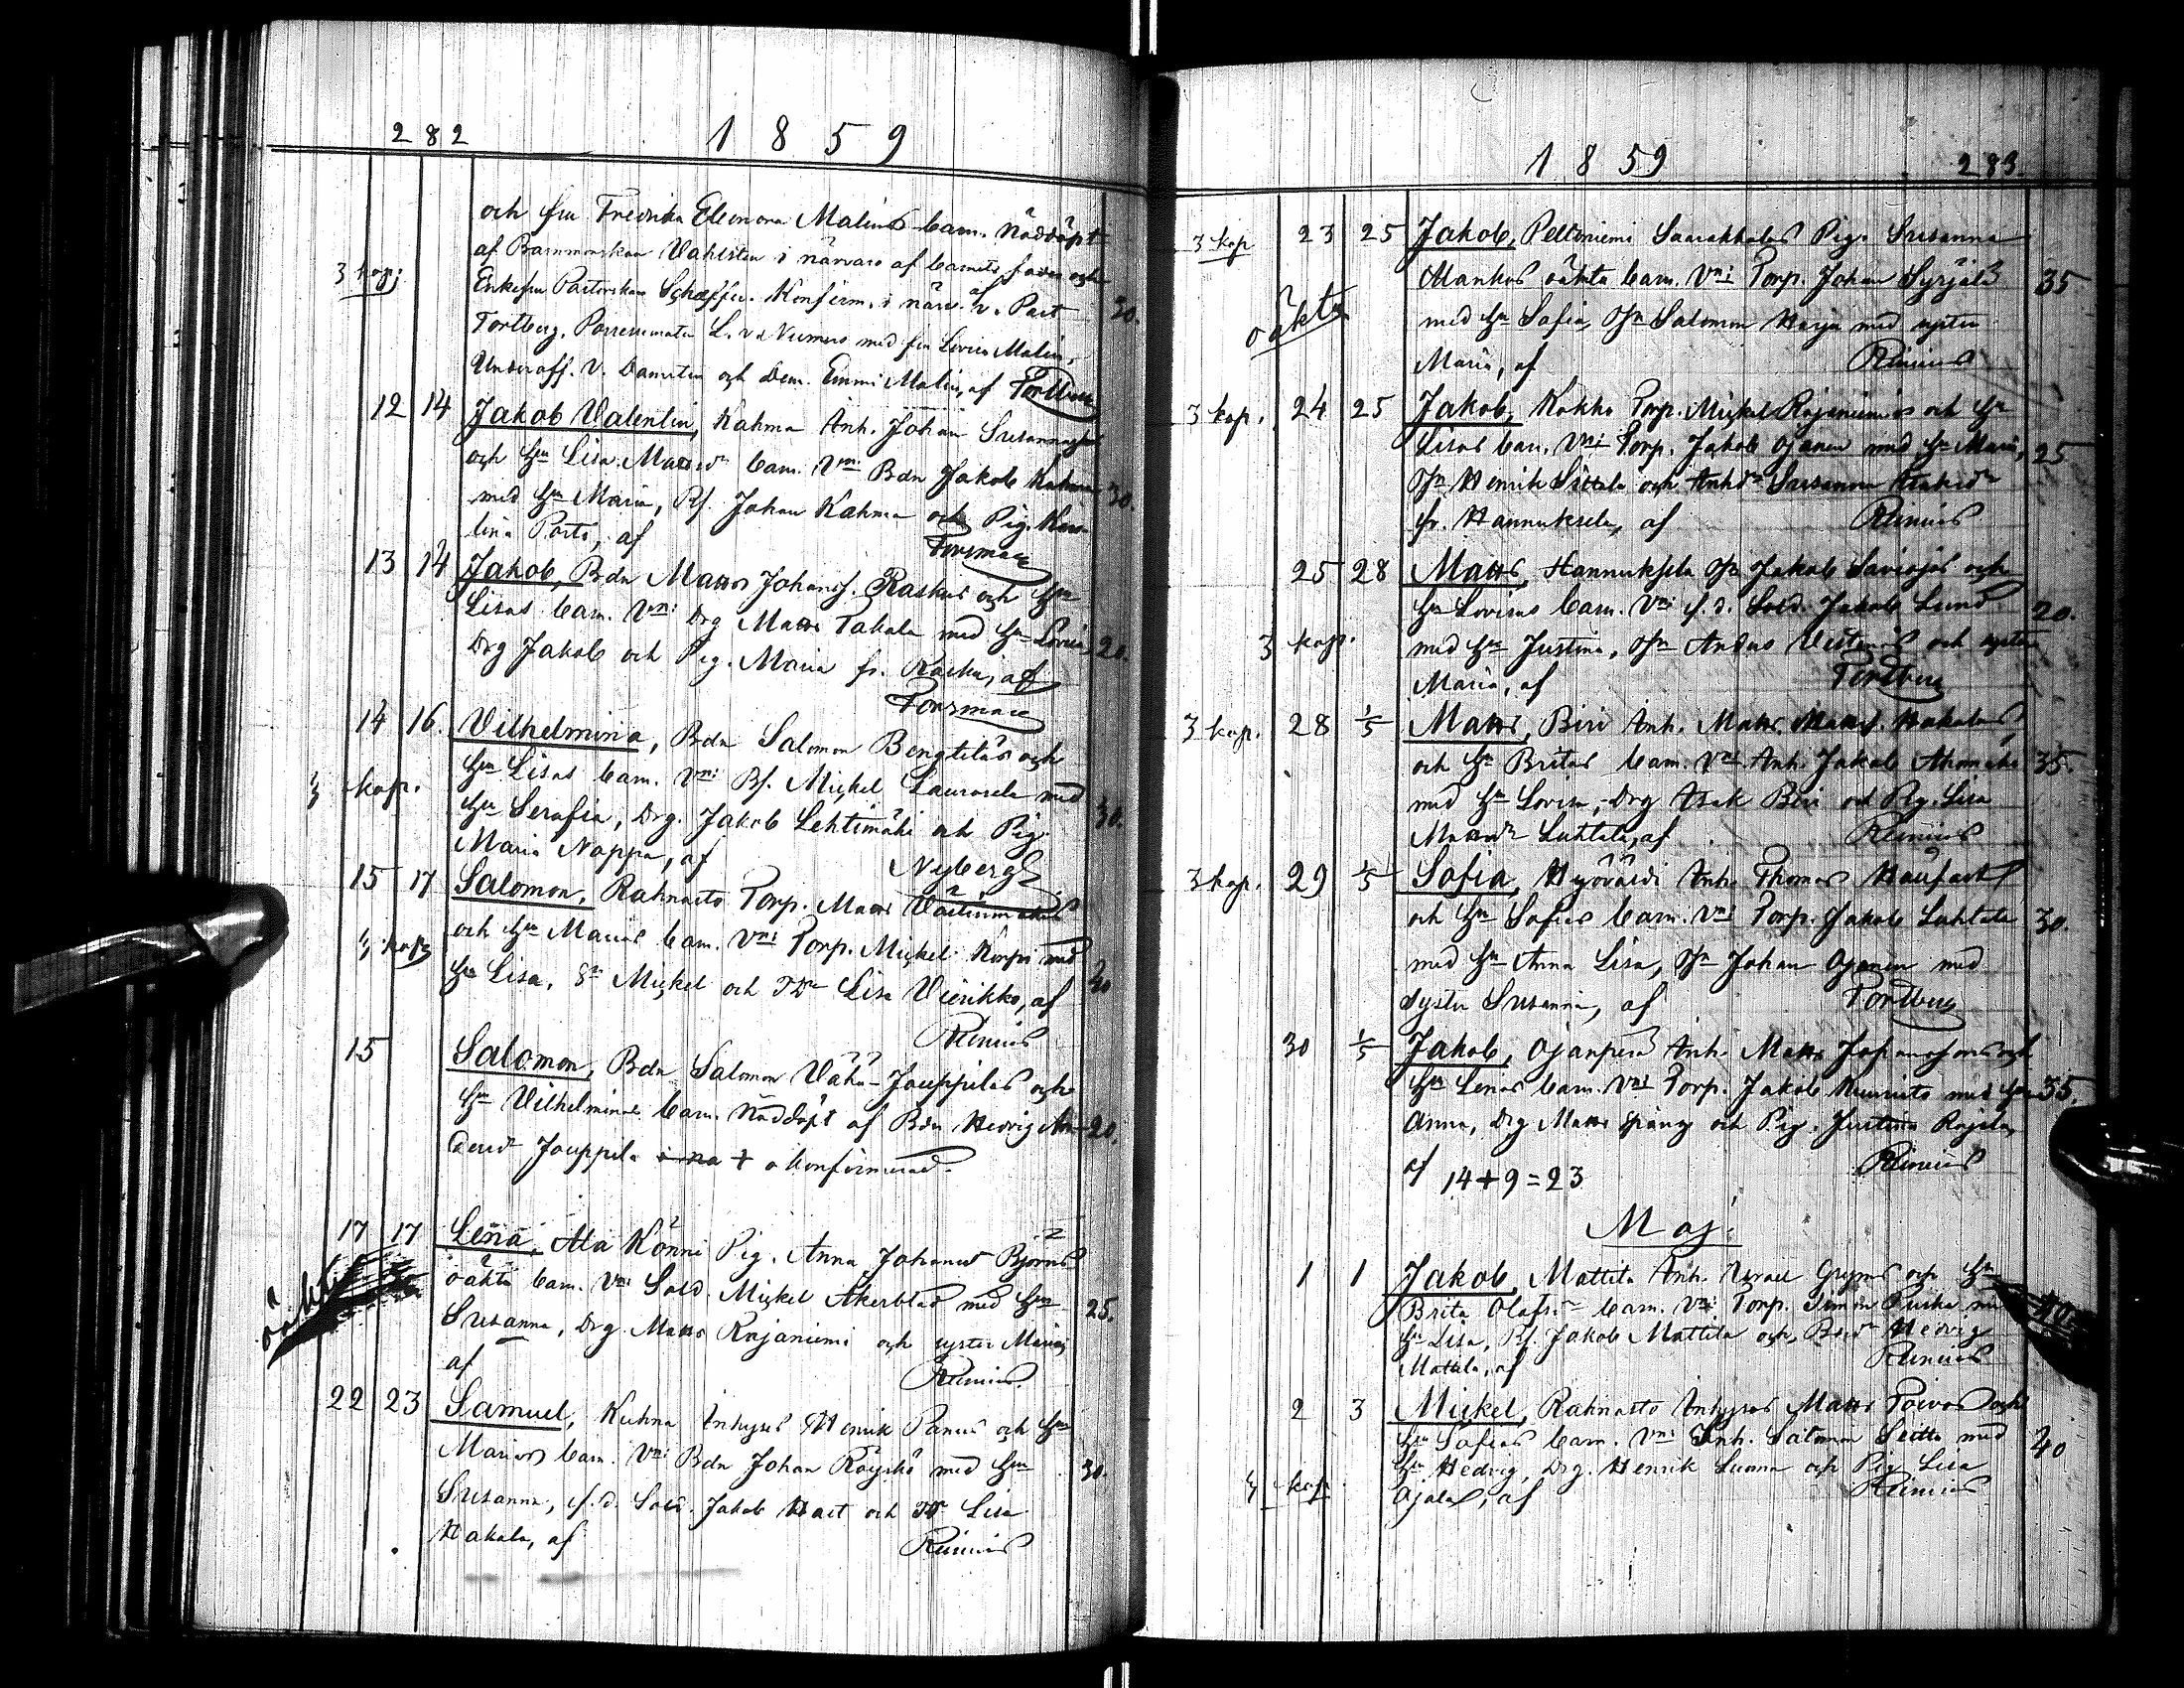 282 1859
och fru Fredrika Eleonora Malins barn. Nöddöpt
af Barnmorskan Vahlsten i närvaro af barnets fader och
3 kop: Enkefru Pastorskan Schæffer. Konfirm. i närv. af v. Past 30.
Tortberg, med fru Lovisa Malin,
Underoff. V. Damsten och Dem. Emmi Malin, af Tortberg
12 14 Jakob Valentin, Kahma Inh. Johan
och Hu Lisa Mattsdr barn. Vni Bdn Jakob Kahma 30.
med Hu Maria, Bs. Johan Kahma och Pig. Karo-
lina Porto, af Forsman
13 14 Jakob, Bdn Matts Johanss. Raskus och Hu
Lisas barn. Vni Drg Matts Takala med Hu Lovisa, 20.
Drg Jakob och Pig. Maria fr. Raska, af
Forsman
14 16. Vilhelmina, Bdn Salomon Bengtilas och
Hu Lisas barn. Vni Bs. Mickel Laurosela med
3 kop. Hu Serafia, Drg. Jakob Lehtimäki och Pig. 30.
Maria Nappa, af Nyberg
15 17 Salomon, Rahnasto Torp. Matts
och Hu Marias barn. Vni Torp. Mickel Korpi med
3 kop Hu Lisa, Sn Mickel och TDr Lisa Vierikko, af 30
Reinius
15 Salomon, Bdn Salomon Vähä-Jouppilas och
Hu Vilhelminas barn. Nöddöpt af Bdn Hedvig An- 20.
dersdr Jouppila o konfirmerad.
17 17 Lena, Ala Könni Pig. Anna Johansdr Björns
oäkta oäkta barn. Vni Sold. Mickel Åkerblad med Hu 25.
Susanna, Drg. Matts Rajaniemi och syster Maria,
af Reinius
22 23 Samuel, Kuhna Inhyses Henrik Panu och Hu
Marias barn. Vni Bdn Johan Röyskö med Hu 30.
Susanna, f.d. Sold. Jakob Hast och TDr Lisa
Hakala, af Reinius
1859 283.
3 kop 23 25 Jakob, Peltoniemi Saarakkalas Pig. Susanna
Mankos oäkta barn. Vni Torp. Johan Syrjälä 35
oäkta med Hu Sofia, Sn Salomon Harju med syster
Maria, af Reinius
3 kop. 24 25 Jakob, Kokko Torp. Mickel Rajaniemis och Hu
Lisas barn. Vni Torp. Jakob Ojanen med Hu Maria, 25
Sn Henrik Sittala och Inhdr Susanna
fr. Hannuksela, af Reinius
25 28 Matts, Hannuksela Sn Jakob Saviojas och
Hu Lovisas barn. Vni f.d. Sold. Jakob Lund 20.
3 kop. med Hu Justina, Sn Andus och syster
Maria, af Tortberg
3 kop. 28 1/5 Matts, Biri Inh. Matts Mattss. Hakalas
och Hu Britas barn. Vni Inh. Jakob Ahomäki 35.
med Hu Lovisa, Drg Isak Biri och Pig. Lisa
Mattsdr Luhtala, af Reinius
3 kop. 29 1/5 Sofia, Hyöväldi Inh. Thomas
och Hu Sofias barn. Vni Torp. Jakob Luhtala 30.
med Hu Anna Lisa, Sn Johan Ojanen med
syster Susanna, af Tortberg
30 1/5 Jakob, Ojanperä Inh. Matts Johanssons och
Hu Lenas barn. Vni Torp. Jakob med Hu 35.
Anna, Drg Matts Spång och Pig. Justina Rajala,
af 14+9=23 Reinius
Maj.
1 1 Jakob, Mattila Inh. Israel och Hu
Brita Olafsdr barn. Vni Torp. Simon Puska med 40.
Hu Lisa, Bs. Jakob Mattila och Hedvig
Mattila, af Reinius
2 3 Mickel, Rahnasto Inhyses Matts Toivos och
Hu Sofias barn. Vni Inh. Salomon med 40
3 kop. Hu Hedvig, Drg. Henrik Luoma och Pig Lisa
Ojala, af Reinius